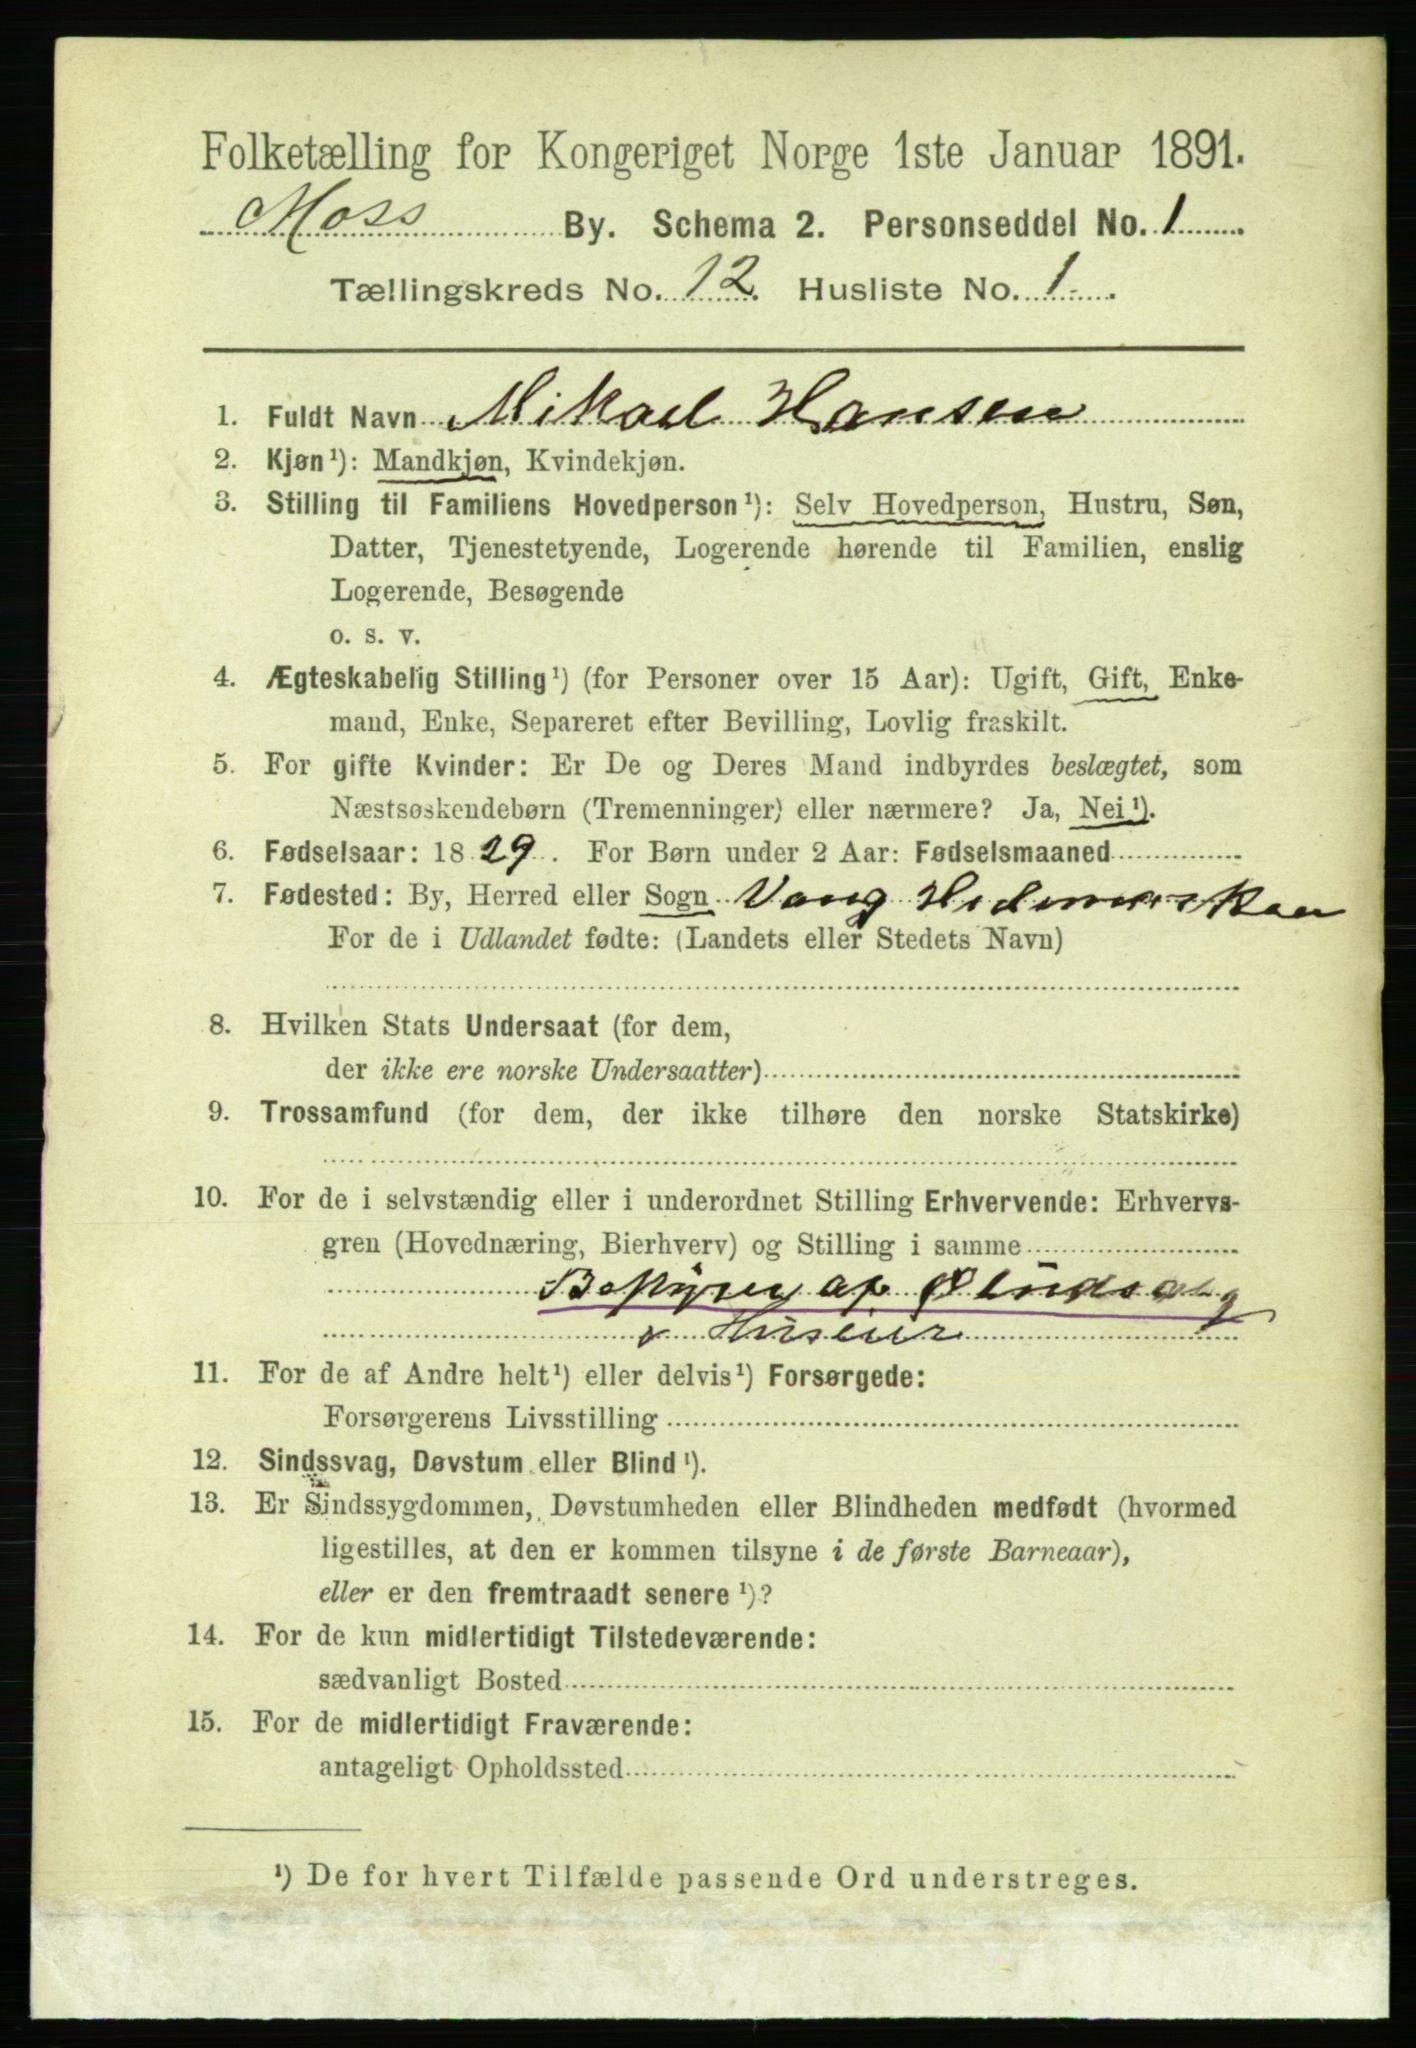 Folketælling for Kongeriget Norge 1ste Januar 1891.
Moss By. Schema 2. Personseddel No. 1
Tællingskreds No. 12. Husliste No. 1.
1. Fuldt Navn Mikael Hansen
2. Kjøn ¹): Mandkjøn, Kvindekjøn.
3. Stilling til Familiens Hovedperson ¹): Selv Hovedperson, Hustru, Søn,
Datter, Tjenestetyende, Logerende hørende til Familien, enslig
Logerende, Besøgende
o. s. v.
4. Ægteskabelig Stilling ¹) (for Personer over 15 Aar): Ugift, Gift, Enke-
mand, Enke, Separeret efter Bevilling, Lovlig fraskilt.
5. For gifte Kvinder: Er De og Deres Mand indbyrdes beslægtet, som
Næstsøskendebørn (Tremenninger) eller nærmere? Ja, Nei ¹).
6. Fødselsaar: 1829. For Børn under 2 Aar: Fødselsmaaned
7. Fødested: By, Herred eller Sogn Vang Hedemarken
For de i Udlandet fødte: (Landets eller Stedets Navn)
8. Hvilken Stats Undersaat (for dem,
der ikke ere norske Undersaatter)
9. Trossamfund (for dem, der ikke tilhøre den norske Statskirke)
10. For de i selvstændig eller i underordnet Stilling Erhvervende: Erhvervs-
gren (Hovednæring, Bierhverv) og Stilling i samme
Bestyrer af Øludsalg
x Huseier
11. For de af Andre helt ¹) eller delvis ¹) Forsørgede:
Forsørgerens Livsstilling
12. Sindssvag, Døvstum eller Blind ¹).
13. Er Sindssygdommen, Døvstumheden eller Blindheden medfødt (hvormed
ligestilles, at den er kommen tilsyne i de første Barneaar),
eller er den fremtraadt senere ¹)?
14. For de kun midlertidigt Tilstedeværende:
sædvanligt Bosted
15. For de midlertidigt Fraværende:
antageligt Opholdssted
¹) De for hvert Tilfælde passende Ord understreges.